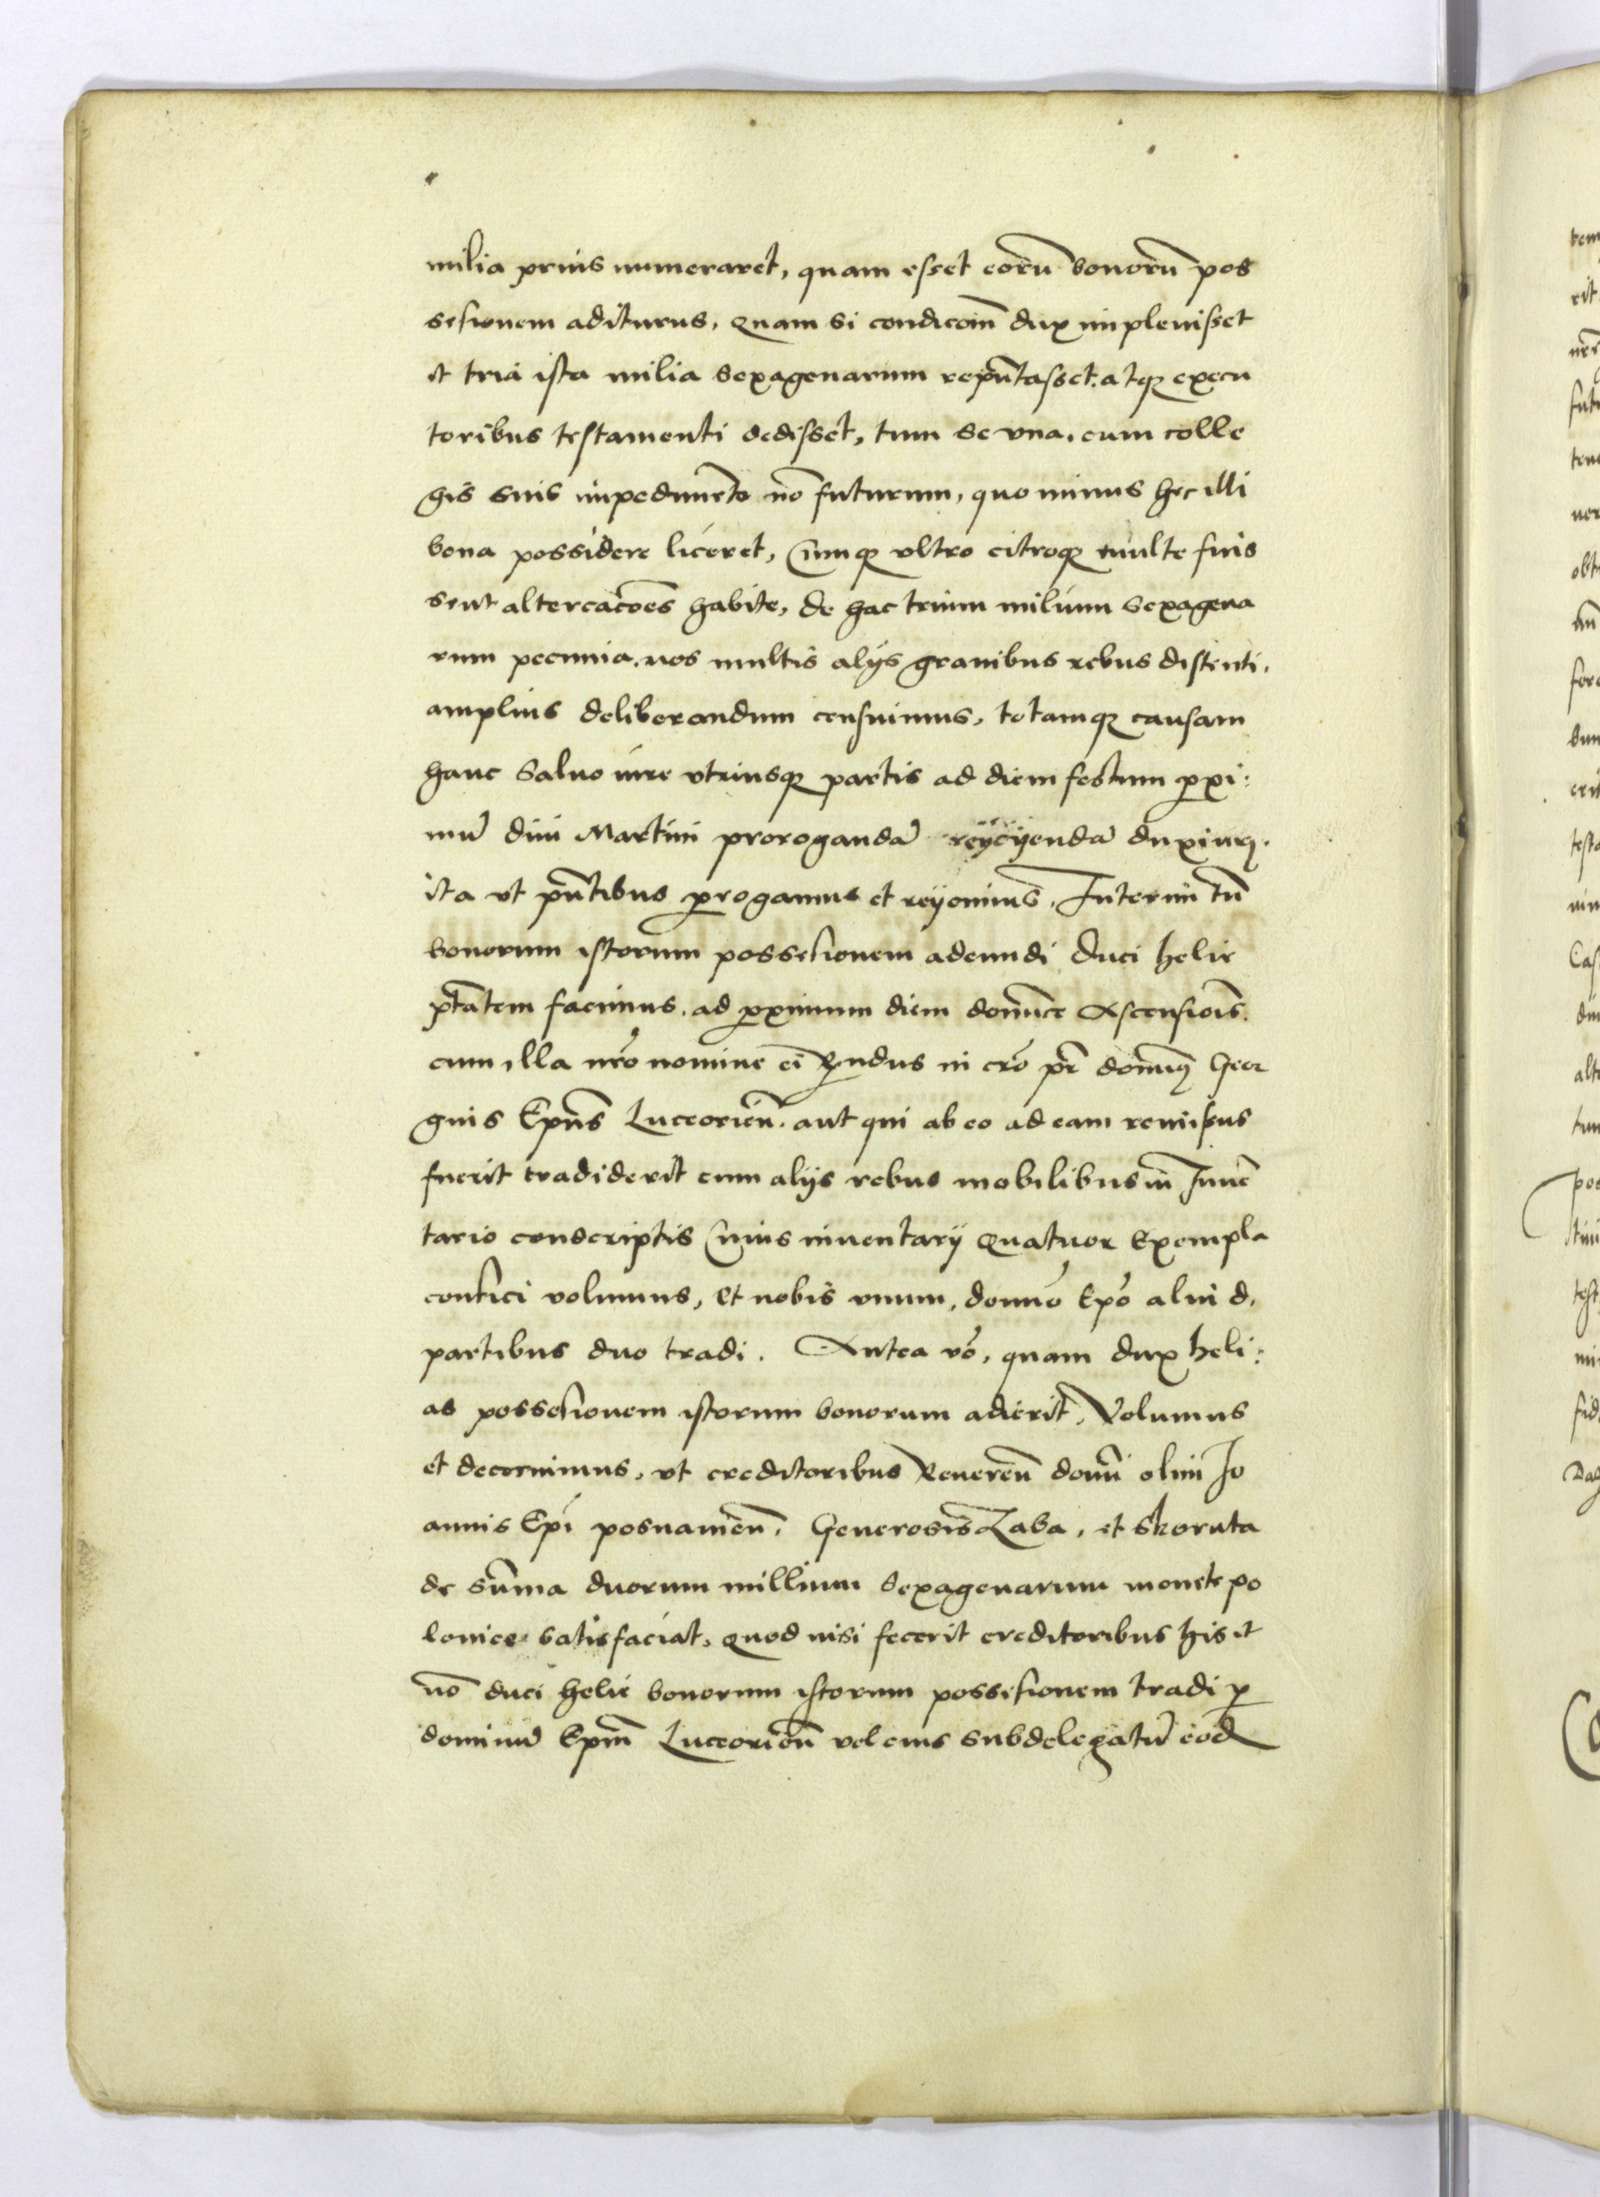 milia prius numeraret, quam esset eorū bonorū pos
sesionem aditurus, Quam si condicoīn dux implenisset
et tria ista milia sexagenarum repūtasset. atqꝫ execu
toribus testamenti dedisset, tum se vna, cum colle
gis suis impedimēto nō futurum, quo minus hec illi
bona possidere liceret, Cumqꝫ vltro citroqꝫ multe fuis
sent altercacōes habite, de hac trium milium sexagena
rum pecunia. nos multis alijs grauibus rebus distenti,
amplius deliberandum censuimus, totamqꝫ causam
hanc Saluo iure vtriusqꝫ partis ad diem festum ꝓxi:
mū diui Martini prorogandā reijcijendā duximꝰ.
ita vt pn̄tibus ꝓrogamus et reijcimus, Interim tn̄
bonorum istorum possesionem adeundi Duci helie
ptātem facimus. ad ꝓximum diem domīce Ascensiois.
cum illa nr̄o nomine ei Rndus in cr̄o pr̄ domīꝰ Geor
gius Epūs Luceorien̄. aut qui ab eo ad eam remissus
fuerit tradiderit cum alijs rebus mobilibus in Inuē
tario conscriptis Cuius inuentarij Quatuor Exempla
confici volumus, Et nobis vnum, domīo Epō aliud,
partibus duo tradi. Antea vō, quam dux heli:
as possesionem istorum bonorum adierit, Volumus
et decernimus, vt creditoribus Reueren̄ domī olim Jo
annis Epī posnanien̄. Generosis Zaba, et Skoruta
de sum̄a duorum millium sexagenarum monete po
lonice satisfaciat, Quod nisi fecerit creditoribus his et
nō duci helie bonorum istorum possesionem tradi ꝑ
dominū Epm̄ Luceorien̄ vel eius subdelegatū eod